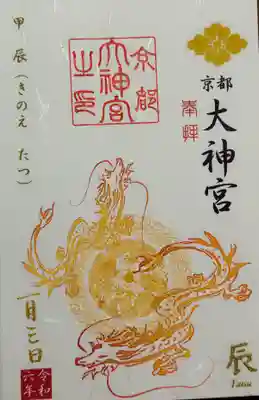 京都
大神宮
奉拝
辰
京都
大神宮
之印
甲辰(きのえ たつ)
一月三日
令和
六年